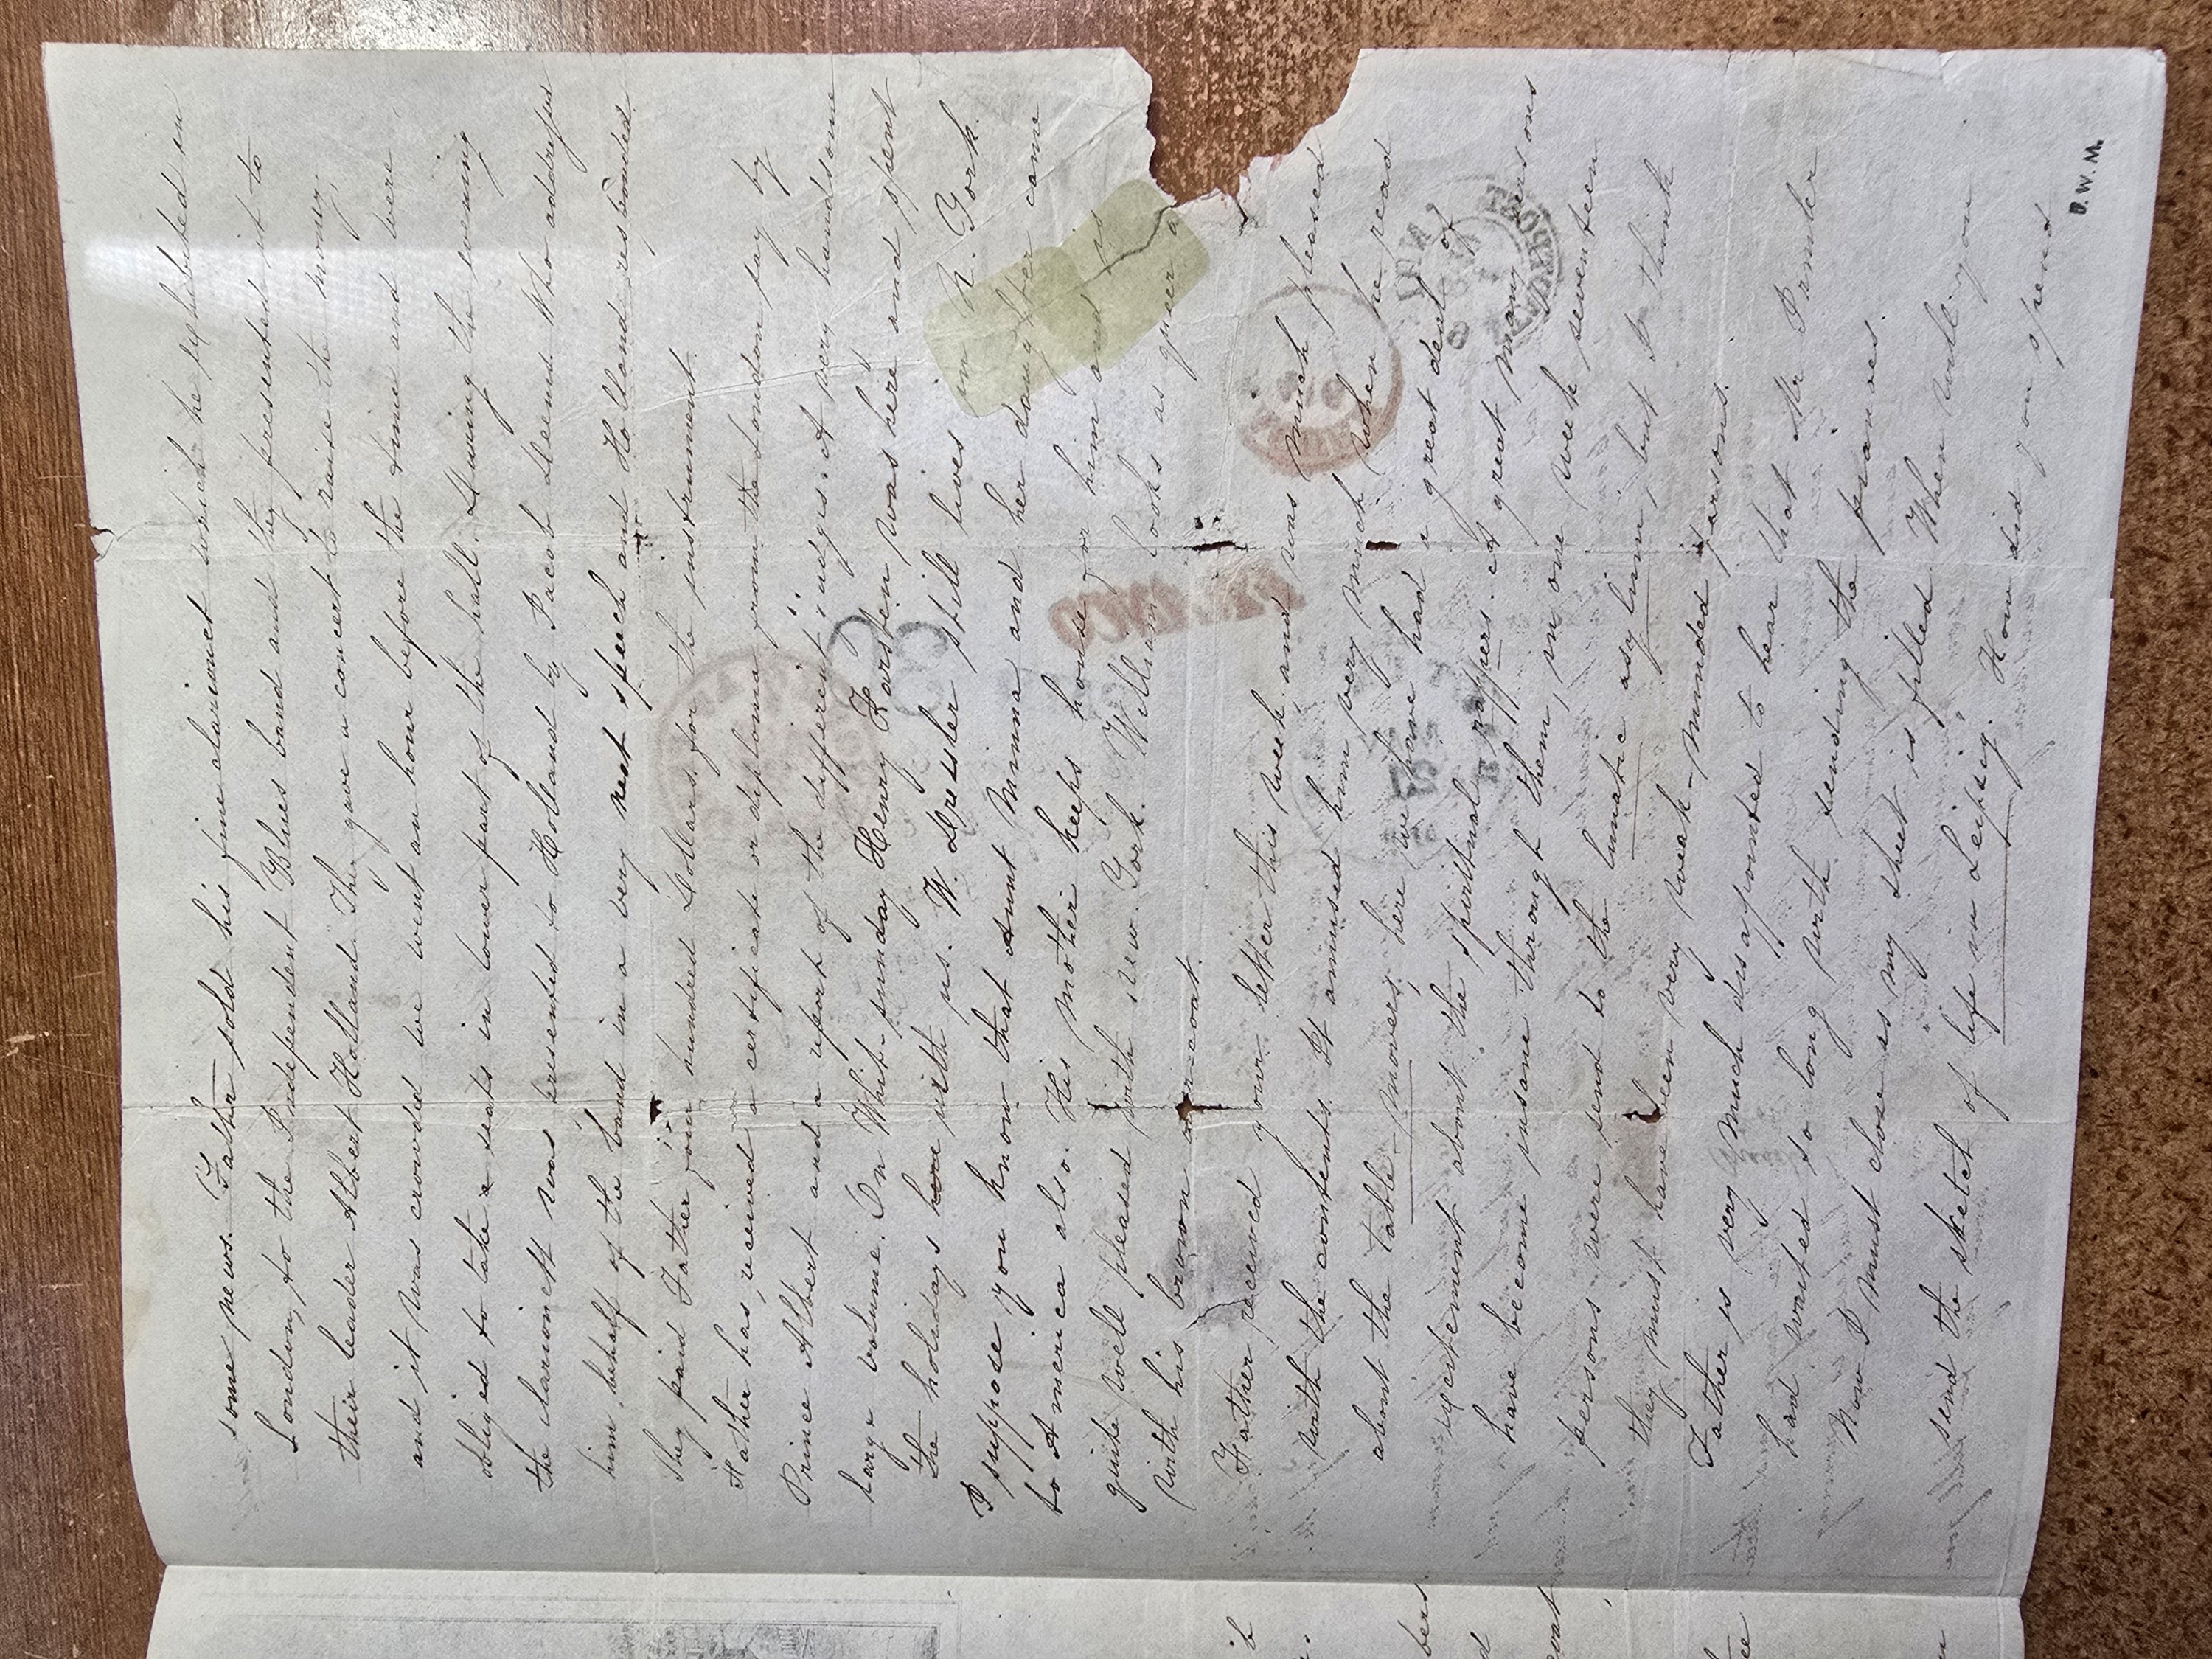 some news. Father sold his fine clarionet which he exhibited in
London, to the Independent Blues band and they presented it to
their leader Albert Holland. They gave a concert to raise the money,
and it was crowded we went an hour before the time and were
obliged to take a seats in lower part of the hall. During the evening
the clarionett was presented to Holland by Jacob Deems. Who addresses
him behalf of the band in a very neat speech and Holland responded.
They paid Father four hundred Dollars for the instrument.
Father has received a certificate or diploma from the London pay by
Prince Albert and a report of the different judges. A very handsome
large volume. On Whit-sunday Henry Karsten was here and spent
the holidays here with us. W. Dressler still lives in N. York.
I suppose you know that Aunt Minna and her daughter came
to America also. His mother keeps house for him and is
quite well pleased with New York. William looks as queer a
with his brown overcoat.
Father received your letter this week and was much pleased
with the contents. It amused him very much when he read
about the table-movers, here we have had a great deal of
excitement about the spiritual rappers. A great many persons
have become insane through them, in one week seventeen
persons were send to the lunatic asylum, but I think
they must have been very weak-minded persons.
Father is very much disappointed to hear that Mr
had waited so long with sending the pianoes.
Now I must close as my sheet is filled When will you
send the sketch of life in Leipsig. How did you spend
D. W. M.